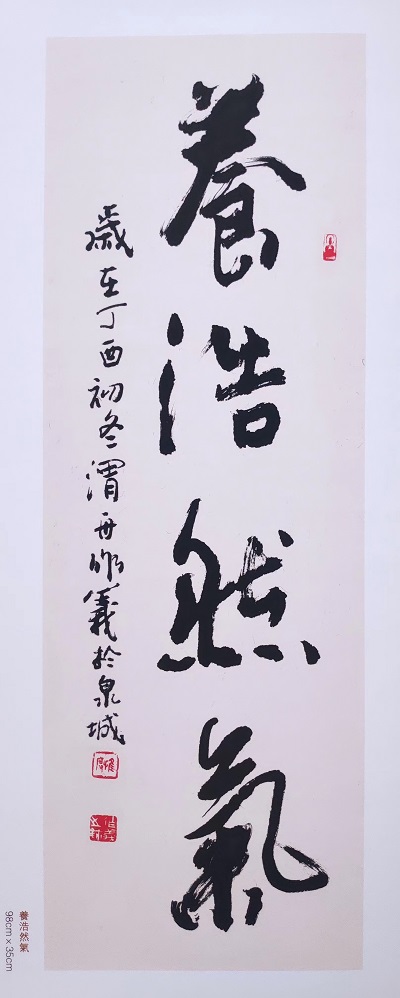 養浩然氣
歲在丁酉初冬渭舟作義於泉城
養浩然氣
98cm×35cm